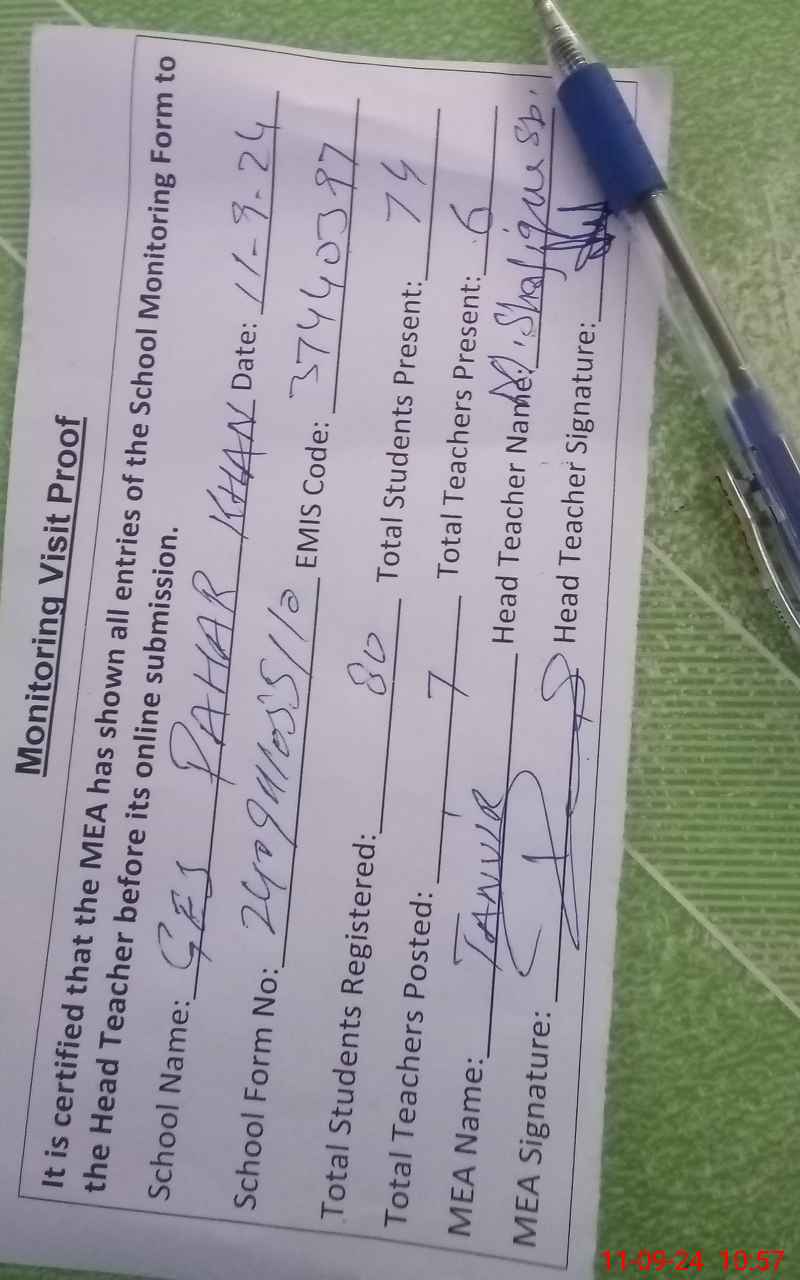 Monitoring Visit Proof
It is certified that the MEA has shown all entries of the School Monitoring Form to
the Head Teacher before its online submission.
School Name: GES PAHAR KHAN Date: 11-9-24
School Form No: EMIS Code: 37440397
Total Students Registered: 80 Total Students Present: 74
Total Teachers Posted: 7 Total Teachers Present: 6
MEA Name: TANVIR Head Teacher Name: M. Shafique
MEA Signature: Head Teacher Signature:
11-09-24 10:57